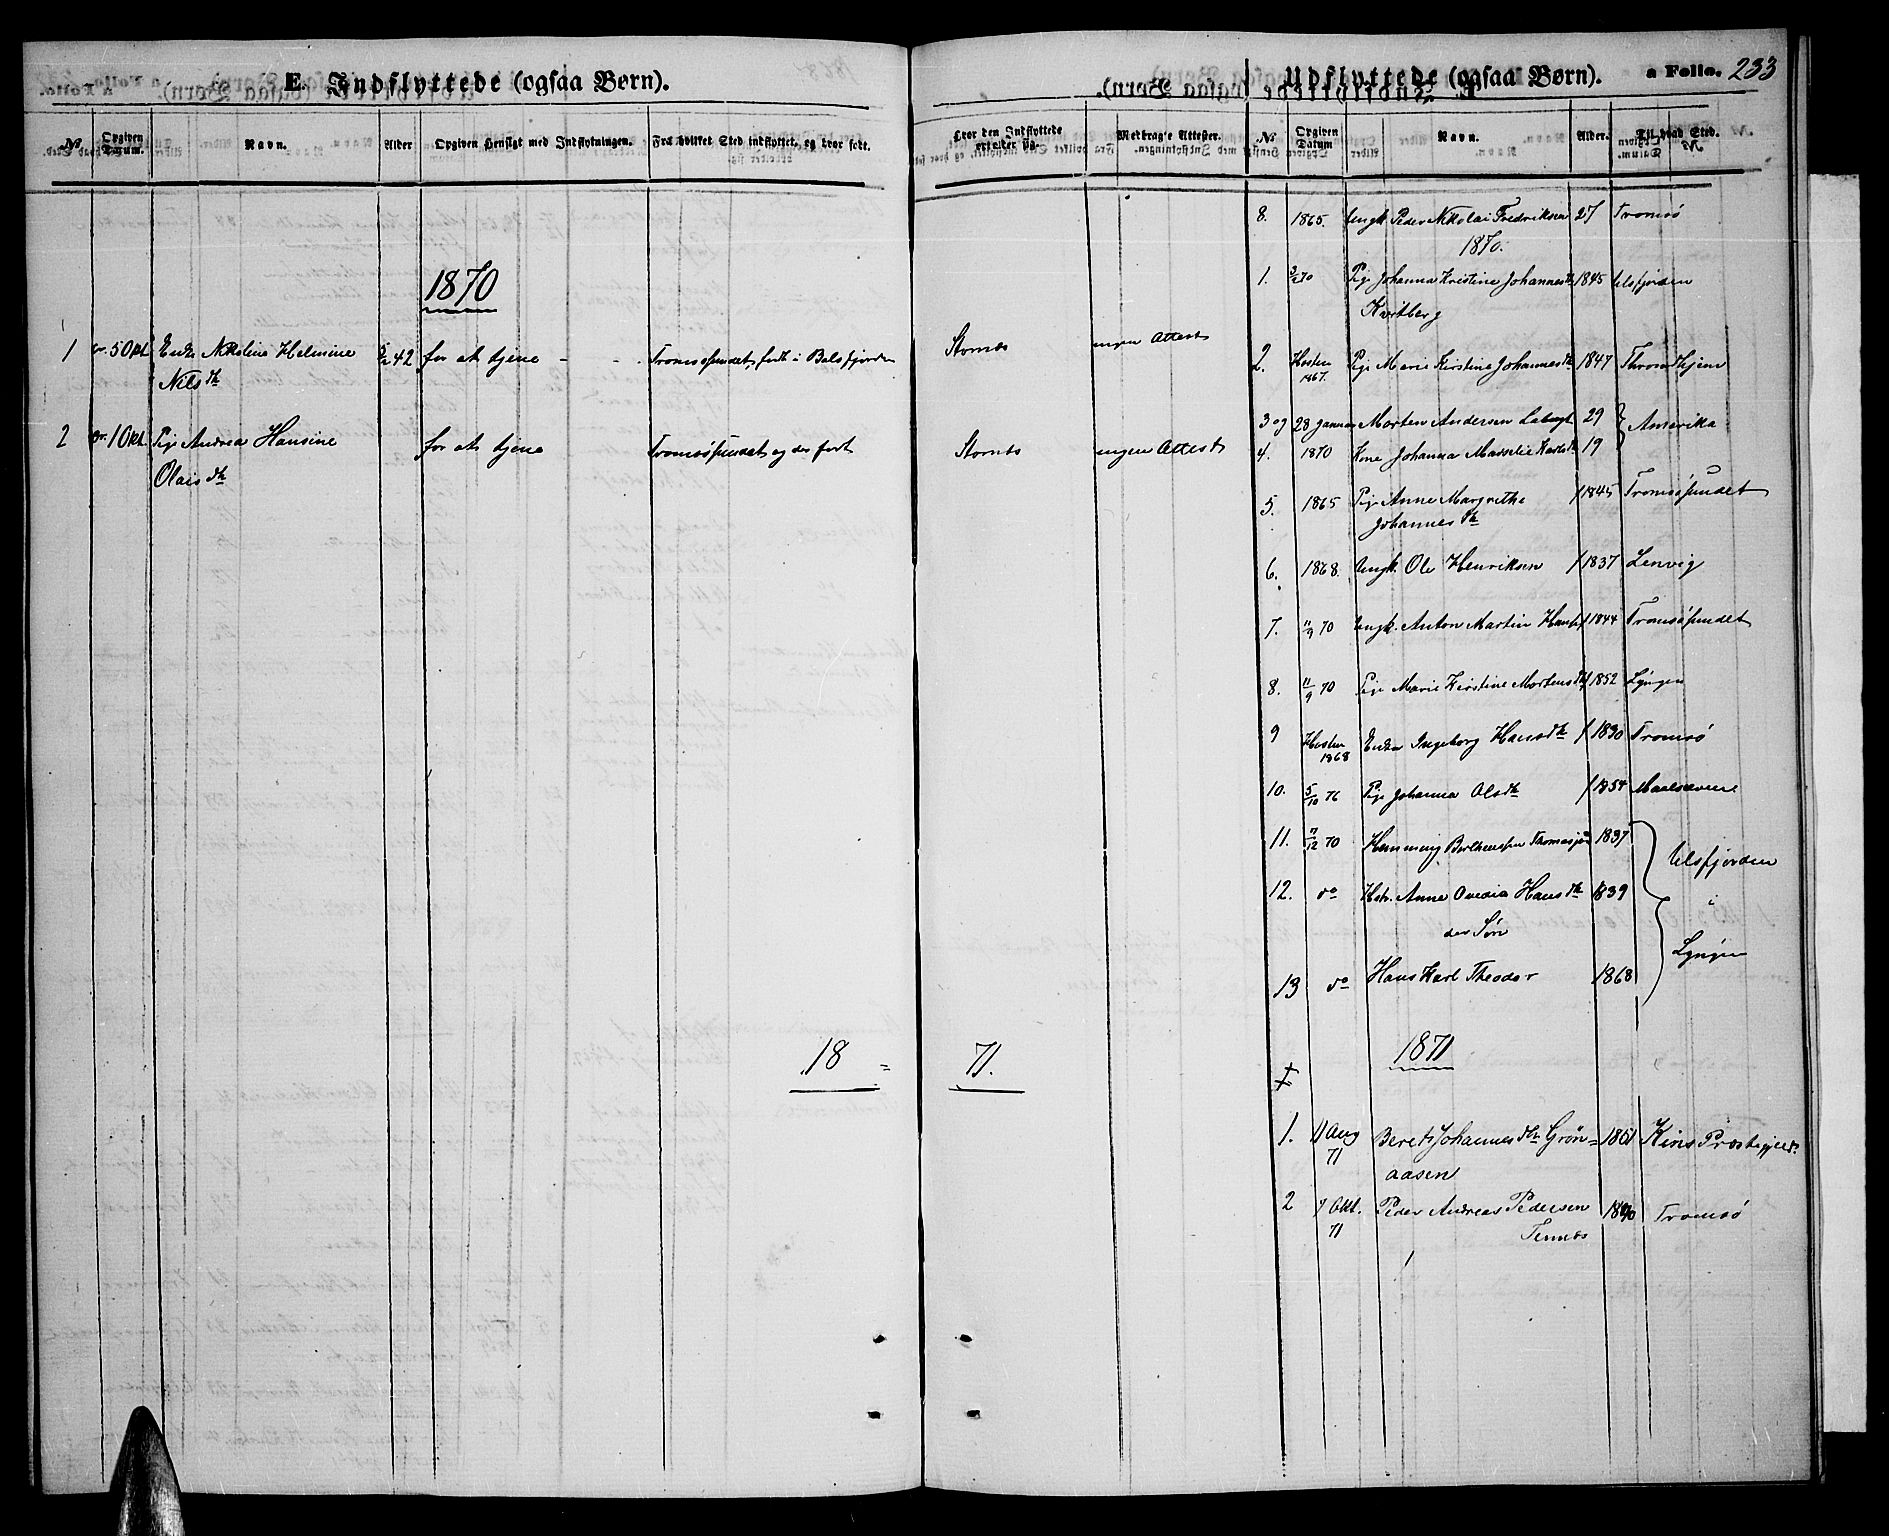 E. Indflyttede (ogsaa Børn).
Udflyttede (ogsaa Børn). a Folio. 233
No Opgiven Datum. Navn. Alder Opgiven Hensigt med Indflytningen. Fra hvilket Sted indflyttet, og hvor født.
Hvor den Indflyttede opholder sig. Medbragte Attester. No Opgiven Datum Navn. Alder. Til hvad Sted.
1870
1 50kt Enke Nikoline Helmine 42 for at tjene - - Tromsøsundet, født i Balsfjorden Stornæs ingen Attest
Nilsdtr
2 10kt. Pige Andrea Hansine for at tjene Tromsøsundet og der født Stornæs ingen Attest
Olaisdtr
18 = 71.
8. 1865. Ungk. Peder Nikolai Fredriksen 27 Tromsö
1870.
1. 70 Pige Johanna Kristine Johannesdtr 1845 Ulsfjorden
Kvitberg
2. Høsten 1867. Pige Marie Kirstine Johannesdtr 1847 Throndhjem
3 og 28 Januar Morten Andersen 29 Amerika
4. 1870 Kone Johanna 19
5. 1865 Pige Anne Margrethe f 1845 Tromsøsundet
Johannesdtr
6. 1868. Ungk. Ole Henriksen f 1837 Lenvig
7. 11/9 70 Ungk. Anton Martin f 1844 Tromsøsundet
8. 11/9 70 Pige Marie Kirstine Mortensdtr f 1852 Lyngen
9 Høsten 1868 Enke Ingeborg Hansdtr f 1830 Tromsö
10. 5/10 76 Pige Johanna Olsdtr f 1854
11. 7/12 70 Hemming 1837 Ulsfjorden
12. do Hstr. Anne Ovedia Hansdtr 1839 i
der Søn Lyngen
13 do Hans Karl Theodor 1868
1871
1. 1/ Aug 71 Beret Johannesdtr Grøn= 1851 Kins Præstegjeld.
aasen
2 1/ Okt. 71 Peder Andreas Pedersen 1840 Tromsö
Tennes